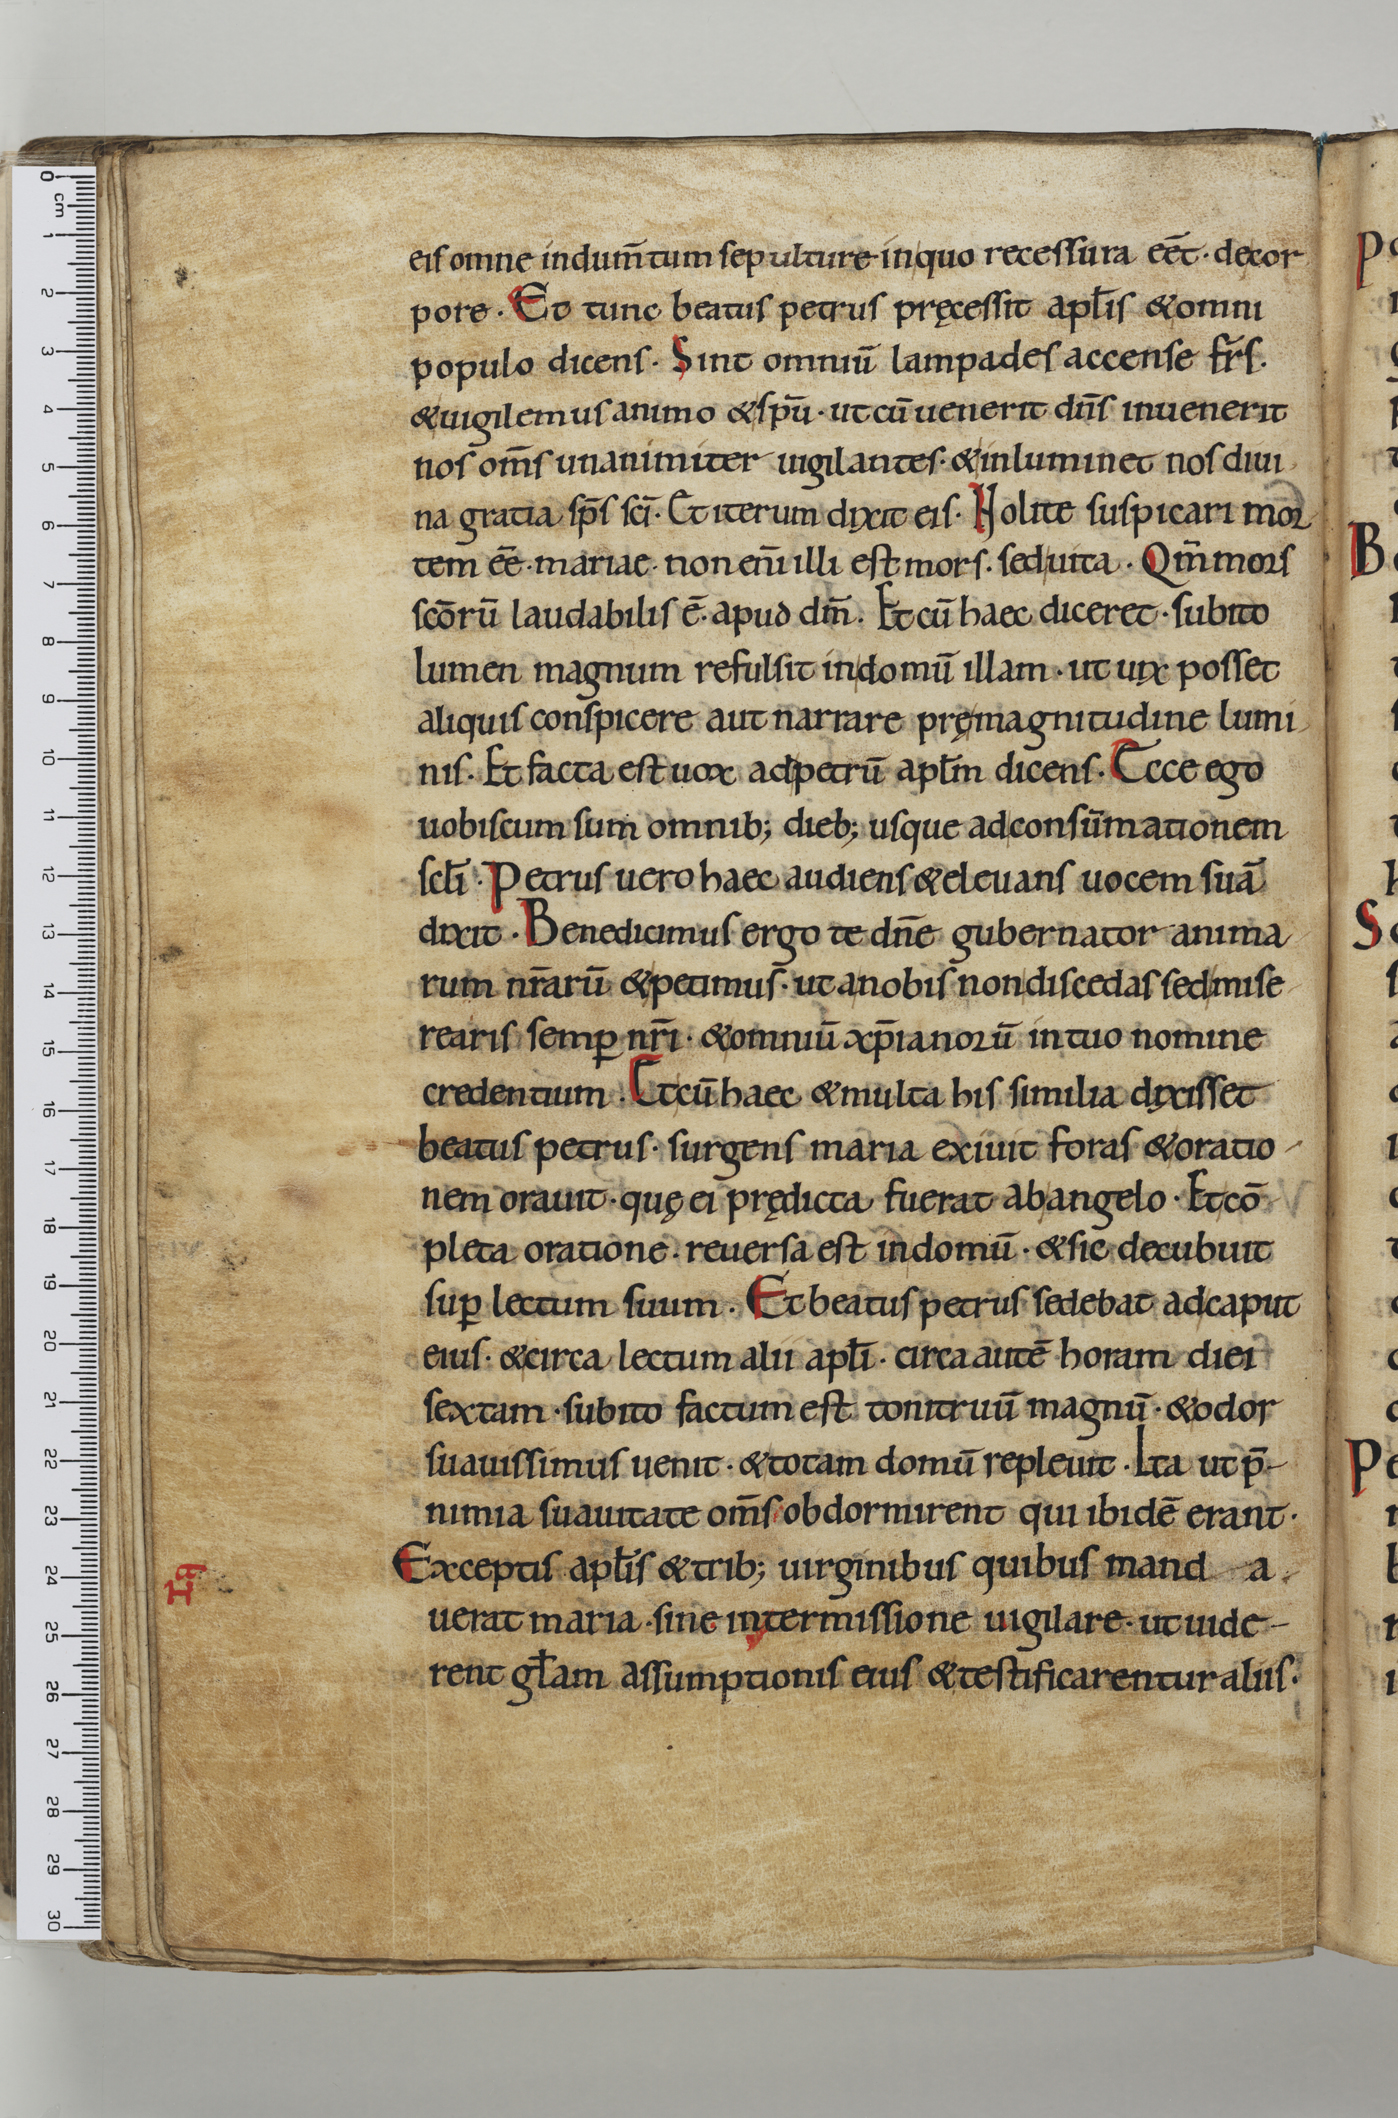 eis omne indum̄tum sepulture in quo recessura eēt · de cor
pore · Et tunc beatus petrus pręcessit apl̄is & omni
populo dicens · Sint omniū lampades accense fr̄s.
& uigilemus animo & sp̄u · ut cū uenerit dn̄s inuenerit
nos om̄s unanimiter uigilantes · & inluminet nos diui
na gratia sp̄s sc̄i · Et iterum dixit eis · Nolite suspicari mor
tem eē · mariae · non en̄i illi est mors · sed uita · Qm̄ mors
scōrū laudabilis ē · apud dm̄ . Et cū haec diceret · subito
lumen magnum refulsit in domū illam · ut uix posset
aliquis conspicere aut narrare pręmagnitudine lumi
nis · Et facta est uox ad petrū apl̄m dicens · Ecce ego
uobiscum sum omnib; dieb; usque ad consūmationem
scl̄i · Petrus uero haec audiens & eleuans uocem suā
dixit · Benedicimus ergo te dn̄e gubernator anima
rum nr̄arū & petimus · ut a nobis non discedas sed mise
rearis semꝑ nr̄i · & omniū xp̄ianorū in tuo nomine
credentium . Et cū haec & multa his similia dixisset
beatus petrus · surgens maria exiuit foras & oratio
nem orauit · quę ei prędicta fuerat ab angelo · Et cō
pleta oratione · reuersa est in domū · & sic decubuit
suꝑ lectum suum . Et beatus petrus sedebat ad caput
eius · & circa lectum alii apl̄i · circa autē horam diei
sextam · subito factum est tonitruū magnū · & odor
suauissimus uenit · & totam domū repleuit · Ita ut p̄
nimia suauitate om̄s obdormirent qui ibidē erant ·
Exceptis apl̄is & trib; uirginibus quibus mand a
uerat maria · sine intermissione uigilare · ut uide-
rent gl̄am assumptionis eius & testificarentur aliis ·